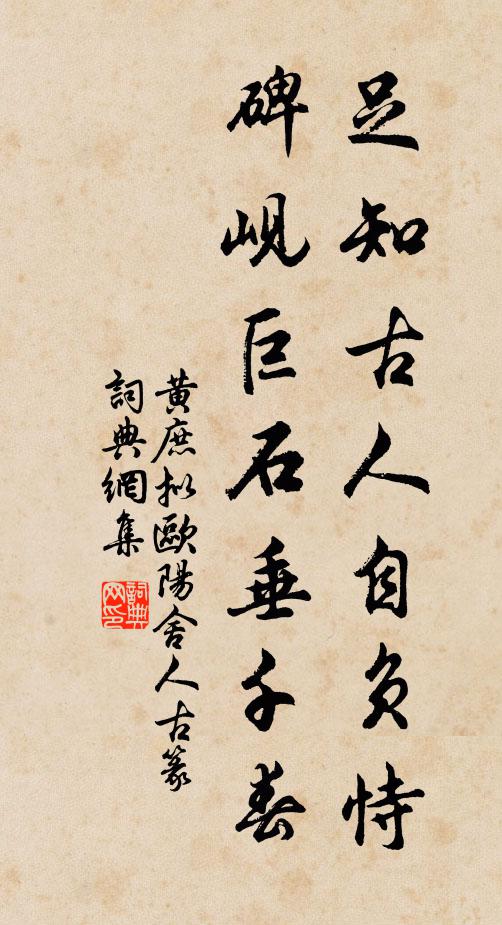 足知古人自负恃
碑岘巨石垂千春
黄庶拟歐陽舍人古篆
詞典網集
詞典网印